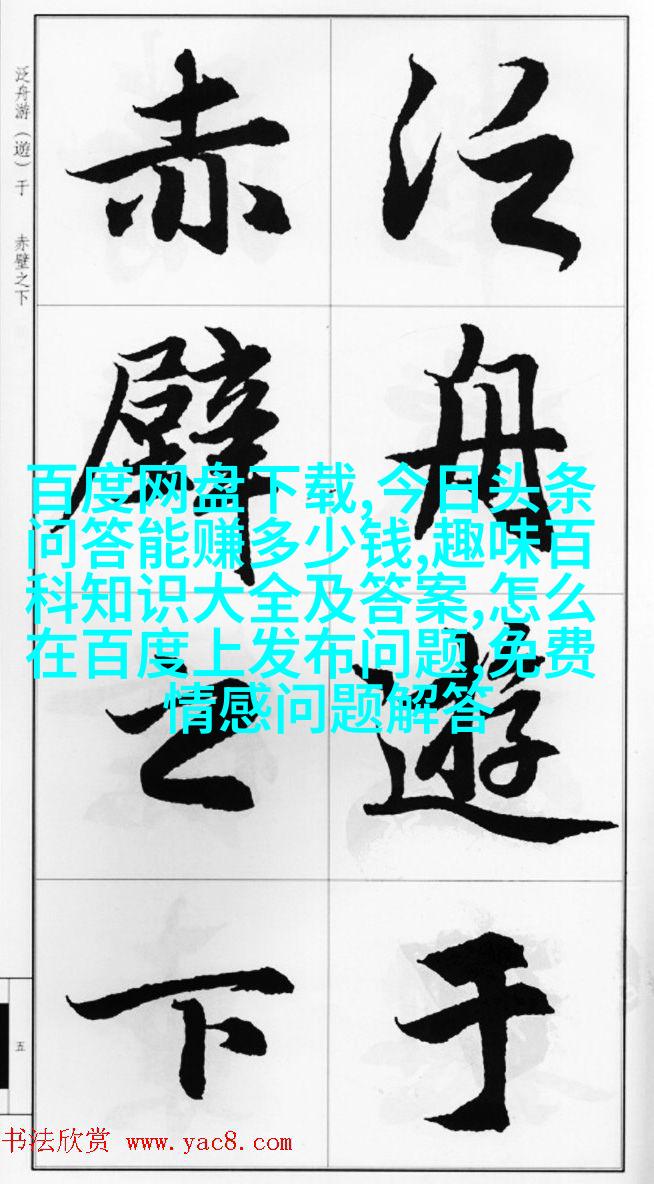 泛舟游（遊）于 赤壁之下
泛舟遊于
赤壁之下
百度网盘下载,今日头条
问答能赚多少钱,趣味百
科知识大全及答案,怎么
在百度上发布问题,免费
情感问题解答
五
书法欣赏 www.yac8.com